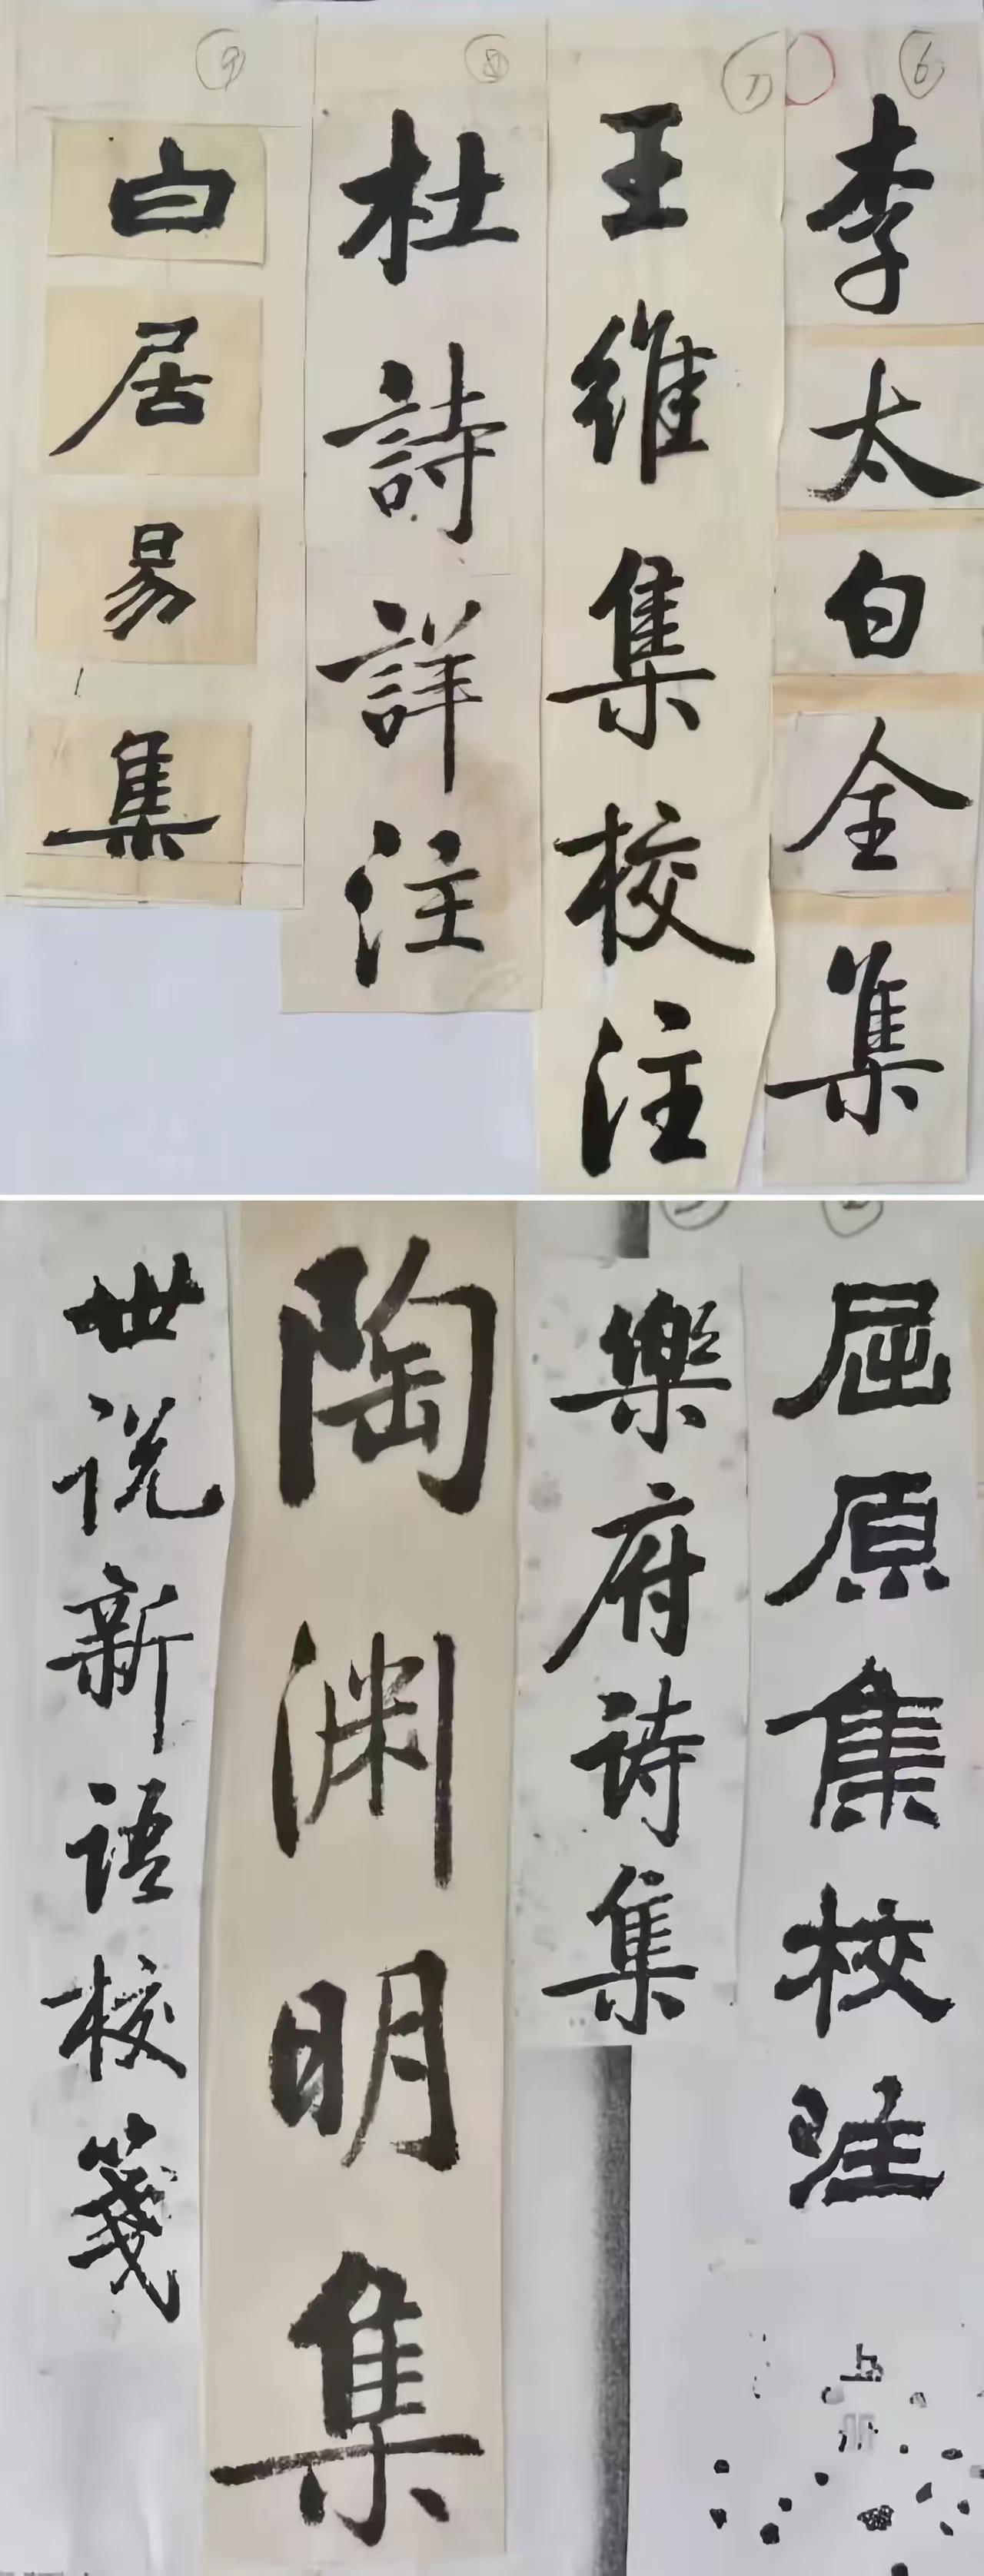 ⑥
李太白全集
⑦
王维集校注
⑧
杜詩詳注
⑨
白居易集
屈原集校注
樂府诗集
陶渊明集
世说新语校箋